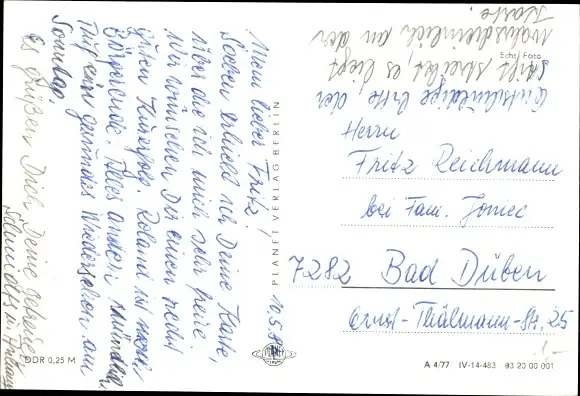 Mein lieber Fritz!
Soeben erhielt ich Deine Karte,
über die ich mich sehr freue.
Wir wünschen Dir einen recht
guten Kurerfolg. Roland ist noch
Alles andere mündlich.
Auf ein gesundes Wiedersehen am
Sonntag.
Es grüßen Dich Deine
Schmidts
10.5.
Entschuldige bitte der
Stift streikt, es liegt
wahrscheinlich an der
Karte.
Echt Foto
Herrn
Fritz Reichmann
bei Fam. Joniec
7282 Bad Düben
Ernst-Thälmann-Str. 25
1,-
PLANET VERLAG BERLIN
PLANET
DDR 0,25 M
A 4/77 IV-14-483 83 20 00 001